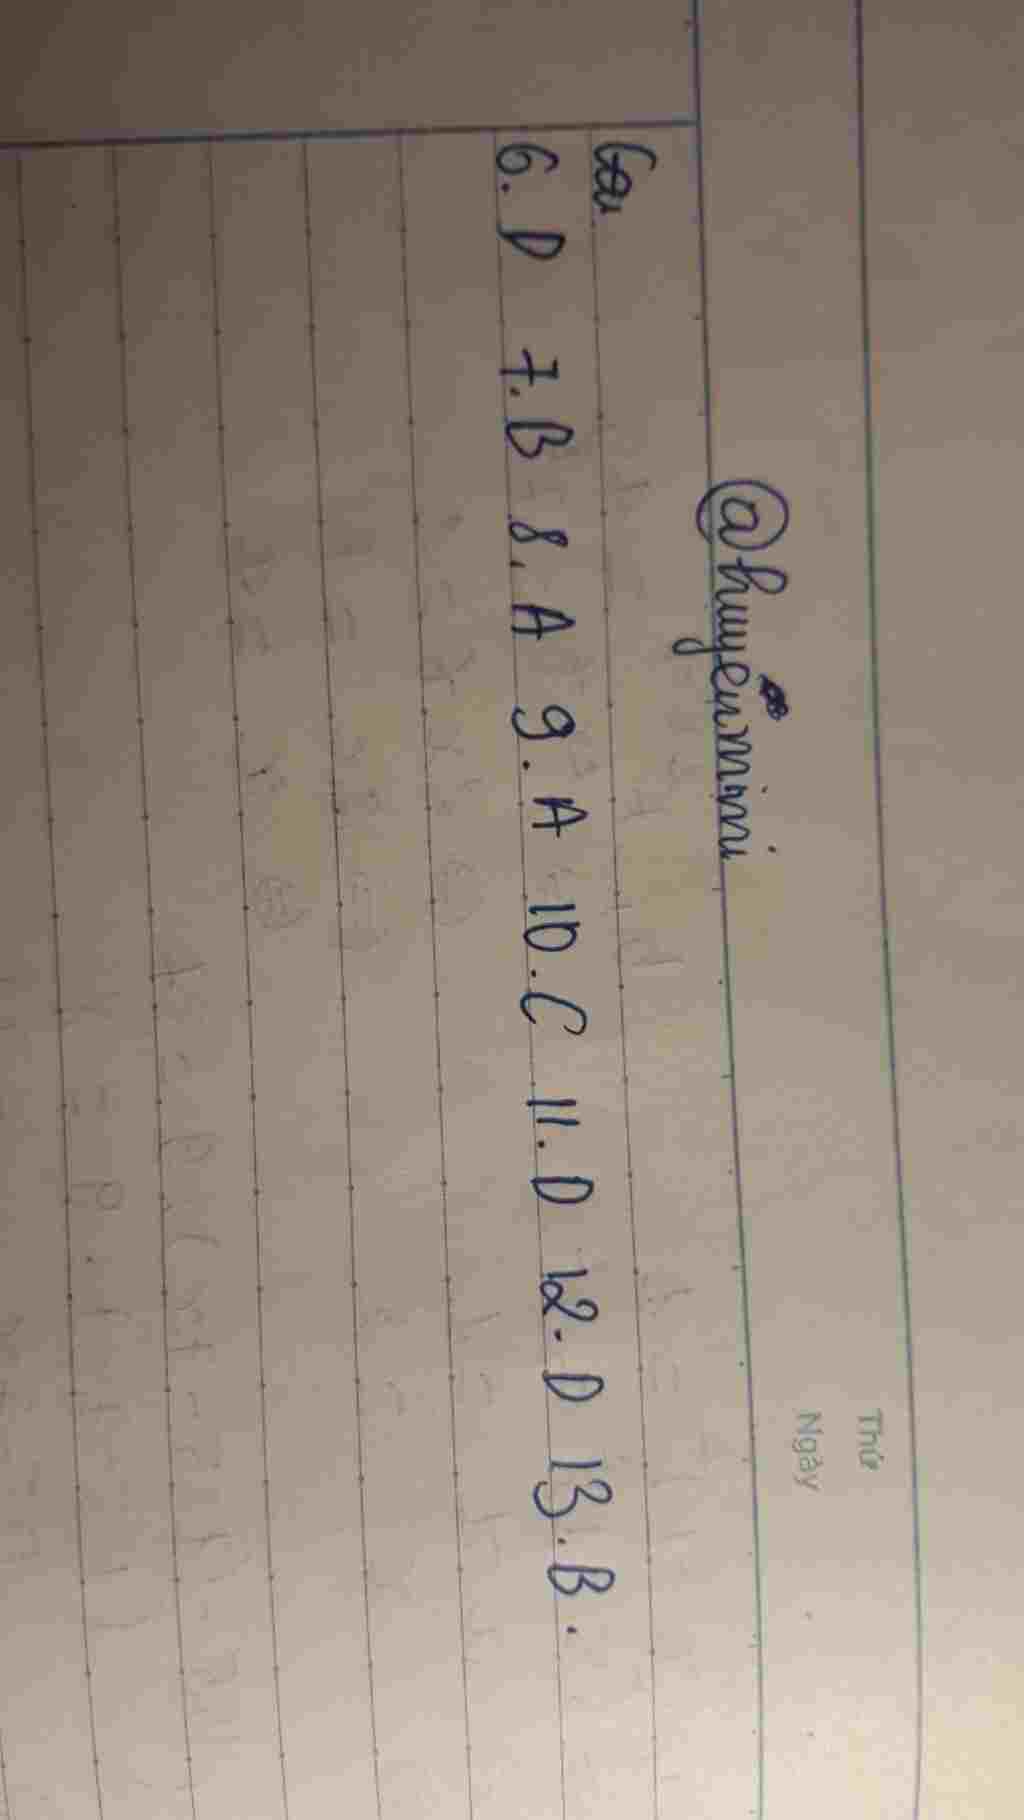 Thứ
Ngày
@huyenmimi
6. D 7. B 8. A 9. A 10. C 11. D 12. D 13. B.